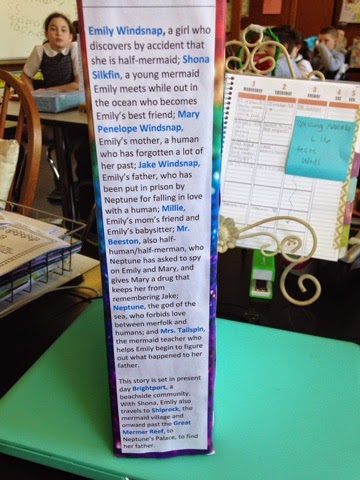 Emily Windsnap, a girl who
discovers by accident that
she is half-mermaid; Shona
Silkfin, a young mermaid
Emily meets while out in
the ocean who becomes
Emily's best friend; Mary
Penelope Windsnap,
Emily's mother, a human
who has forgotten a lot of
her past; Jake Windsnap,
Emily's father, who has
been put in prison by
Neptune for falling in love
with a human; Millie,
Emily's mom's friend and
Emily's babysitter; Mr.
Beeston, also half-
human/half-merman, who
Neptune has asked to spy
on Emily and Mary, and
gives Mary a drug that
keeps her from
remembering Jake;
Neptune, the god of the
sea, who forbids love
between merfolk and
humans; and Mrs. Tailspin,
the mermaid teacher who
helps Emily begin to figure
out what happened to her
father.
This story is set in present
day Brightport, a
beachside community.
With Shona, Emily also
travels to Shiprock, the
mermaid village and
onward past the Great
Mermer Reef, to
Neptune's Palace, to find
her father.